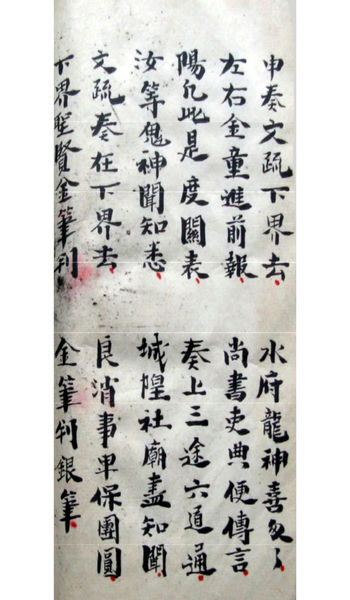 申奏文疏下界去 水府龍神喜
左右金童進前報 尚書吏典便傳言
陽凡此是度關表 奏上三途六道通
汝等鬼神聞知悉 城隍社廟盡知聞
文疏奏在下界去 良消事畢保團圓
下界聖賢金筆判 金筆判銀筆